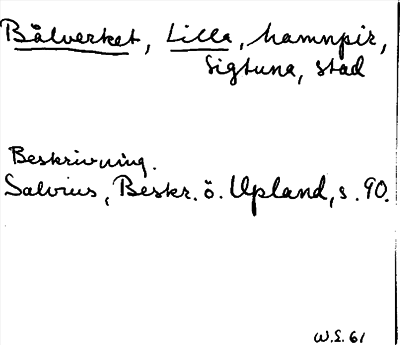 Bålverket, Lilla, hamnpir,
Sigtuna, stad
Beskrivning.
Salvius, Beskr. ö. Upland, s. 90.
W.S. 61